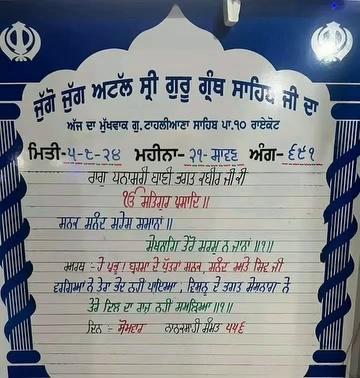 ਜੁੱਗੋ ਜੁੱਗ ਅਟੱਲ ਸ੍ਰੀ ਗੁਰੂ ਗ੍ਰੰਥ ਸਾਹਿਬ ਜੀ ਦਾ
ਅੱਜ ਦਾ ਮੁੱਖਵਾਕ ਗੁ. ਟਾਹਲੀਆਣਾ ਸਾਹਿਬ ਪਾ.੧੦ ਰਾਏਕੋਟ
ਮਿਤੀ-੫-੮-੨੪ ਮਹੀਨਾ-੨੧-ਸਾਵਣ ਅੰਗ-੬੯੧
ਰਾਗੁ ਧਨਾਸਰੀ ਬਾਣੀ ਭਗਤ ਕਬੀਰ ਜੀ ਕੀ
ੴ ਸਤਿਗੁਰ ਪ੍ਰਸਾਦਿ॥
ਸਨਕ ਸਨੰਦ ਮਹੇਸ ਸਮਾਨਾਂ॥
ਸੇਖਨਾਗਿ ਤੇਰੋ ਮਰਮੁ ਨ ਜਾਨਾਂ॥੧॥
ਅਰਥ:- ਹੇ ਪ੍ਰਭੂ! ਬ੍ਰਹਮਾ ਦੇ ਪੁੱਤਰਾਂ ਸਨਕ, ਸਨੰਦ ਅਤੇ ਸ਼ਿਵ ਜੀ
ਵਰਗਿਆਂ ਨੇ ਤੇਰਾ ਭੇਦ ਨਹੀਂ ਪਾਇਆ, ਵਿਸ਼ਨੂੰ ਦੇ ਭਗਤ ਸ਼ੇਸ਼ਨਾਗ ਨੇ
ਤੇਰੇ ਦਿਲ ਦਾ ਰਾਜ਼ ਨਹੀਂ ਸਮਝਿਆ॥੧॥
ਦਿਨ:- ਸੋਮਵਾਰ ਨਾਨਕਸ਼ਾਹੀ ਸੰਮਤ ੫੫੬